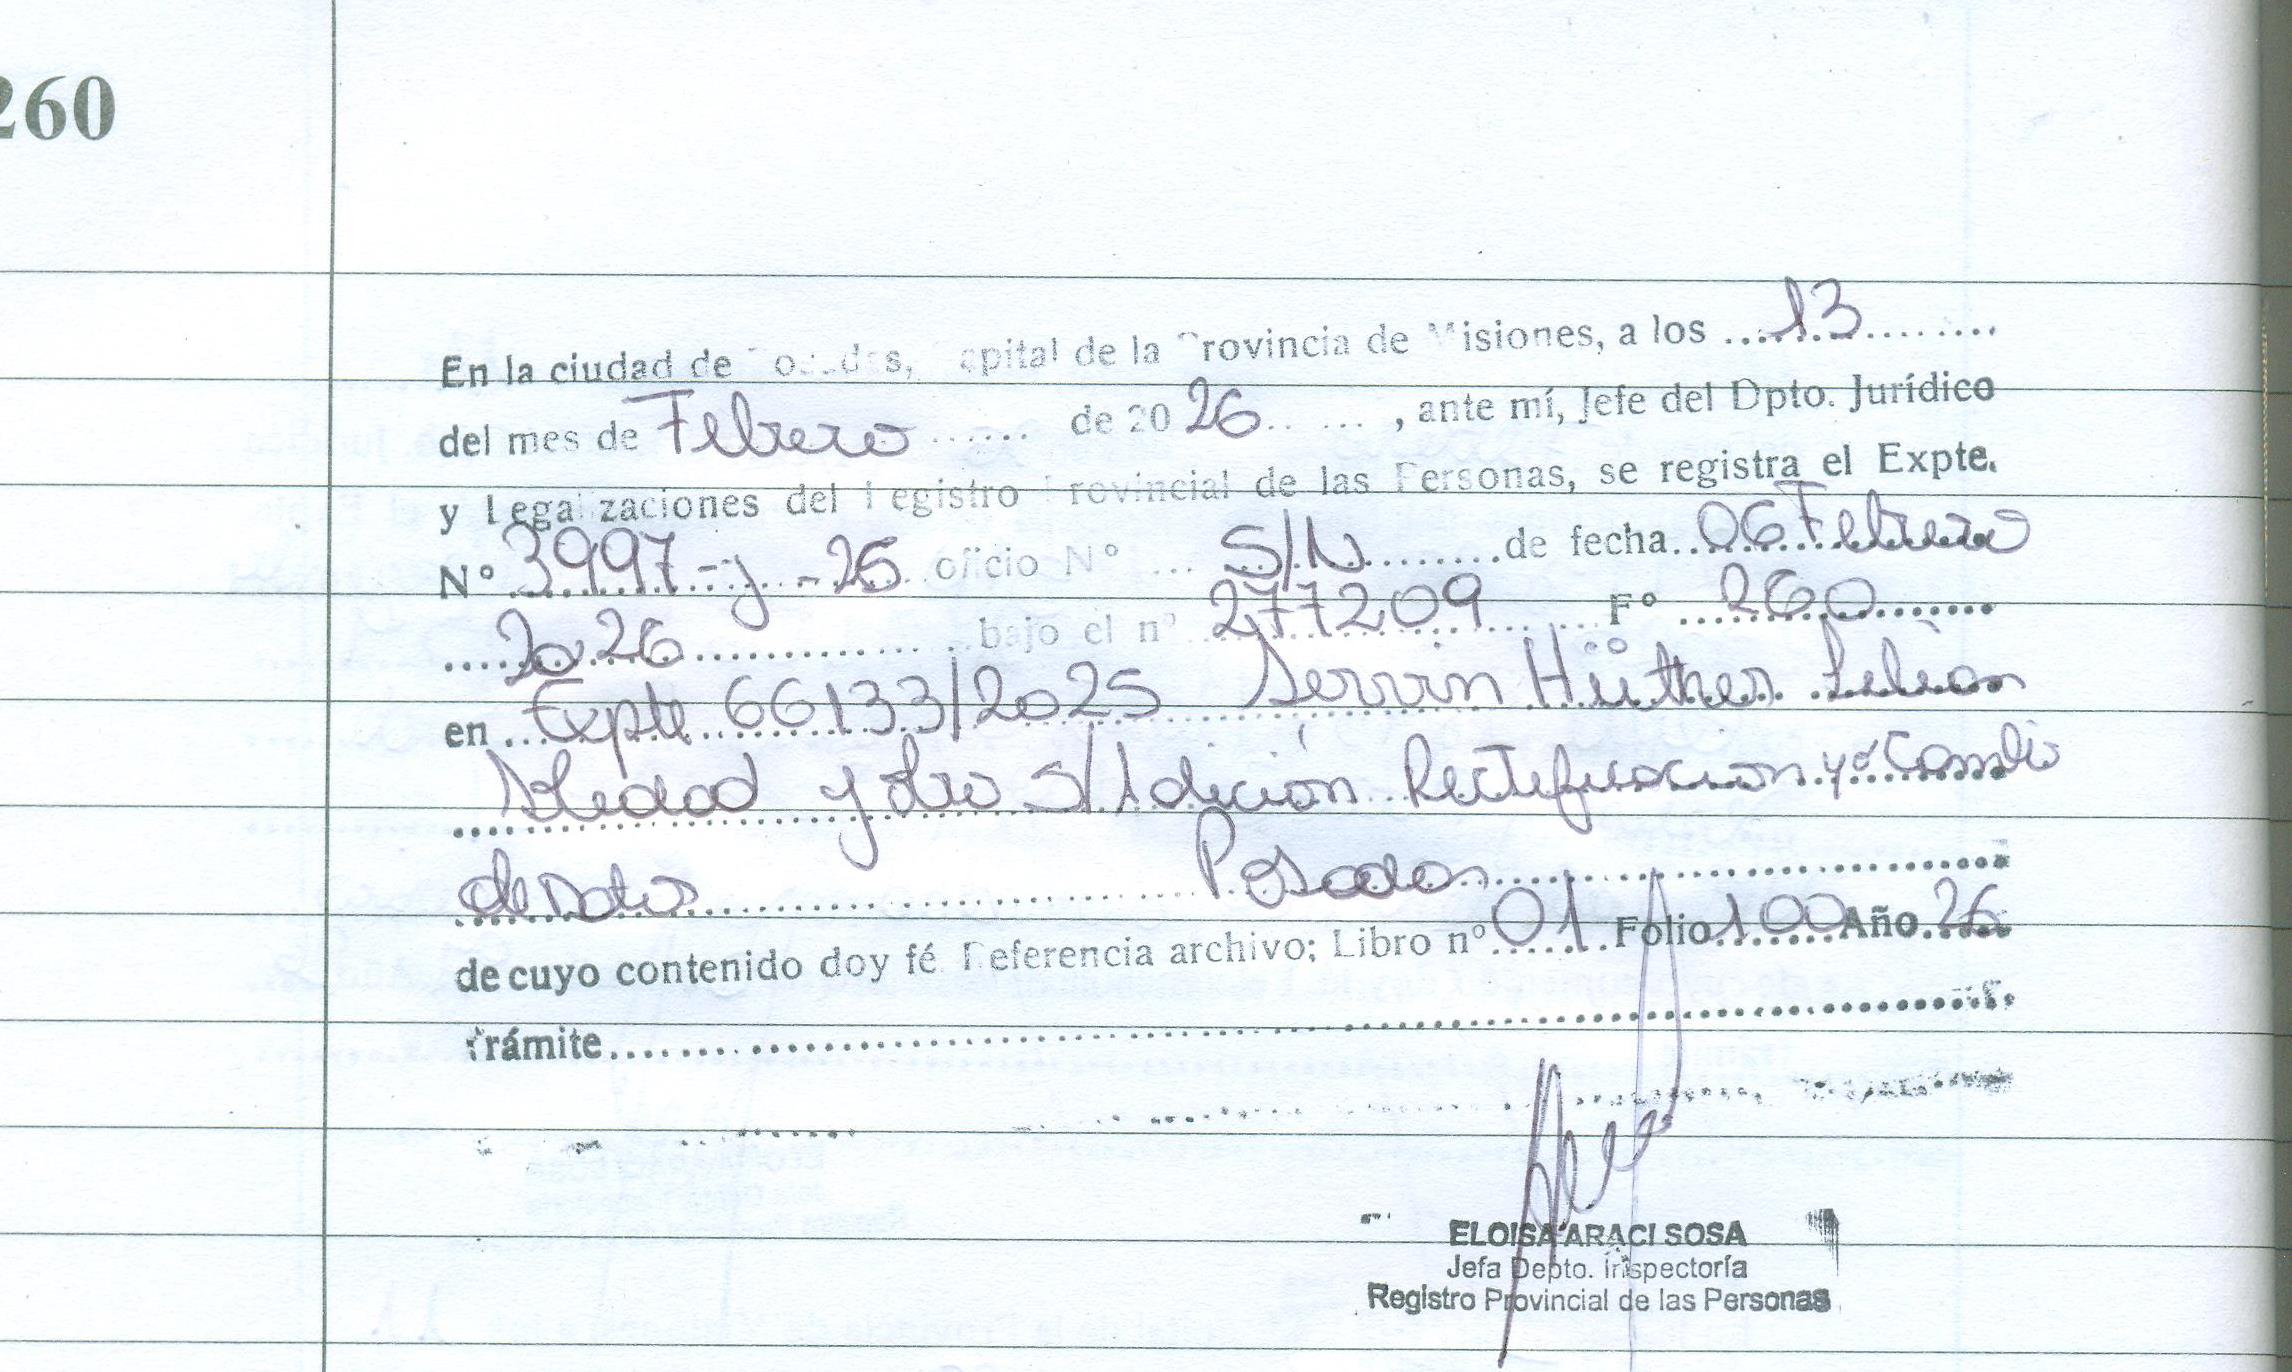 260
En la ciudad de Posadas, Capital de la Provincia de Misiones, a los ....13........
del mes de Febrero ...... de 20 26.. ... , ante mí, Jefe del Dpto. Jurídico
y Legalizaciones del Registro Provincial de las Personas, se registra el Expte.
N° 3997-y-26 oficio N° ... S/N ........de fecha..06 Febrero
....2026.................bajo el n° 277209 ..... F° ...260.......
en ...Expte 66133/2025 Servin Hüther Lilian
Soledad y otro S/Adición Rectificacion y o Cambio
de Datos .......... Posadas ..........
de cuyo contenido doy fé Referencia archivo; Libro n° 01 Folio 100 Año 26
Trámite..........
ELOISA ARACI SOSA
Jefa Depto. Inspectoría
Registro Provincial de las Personas